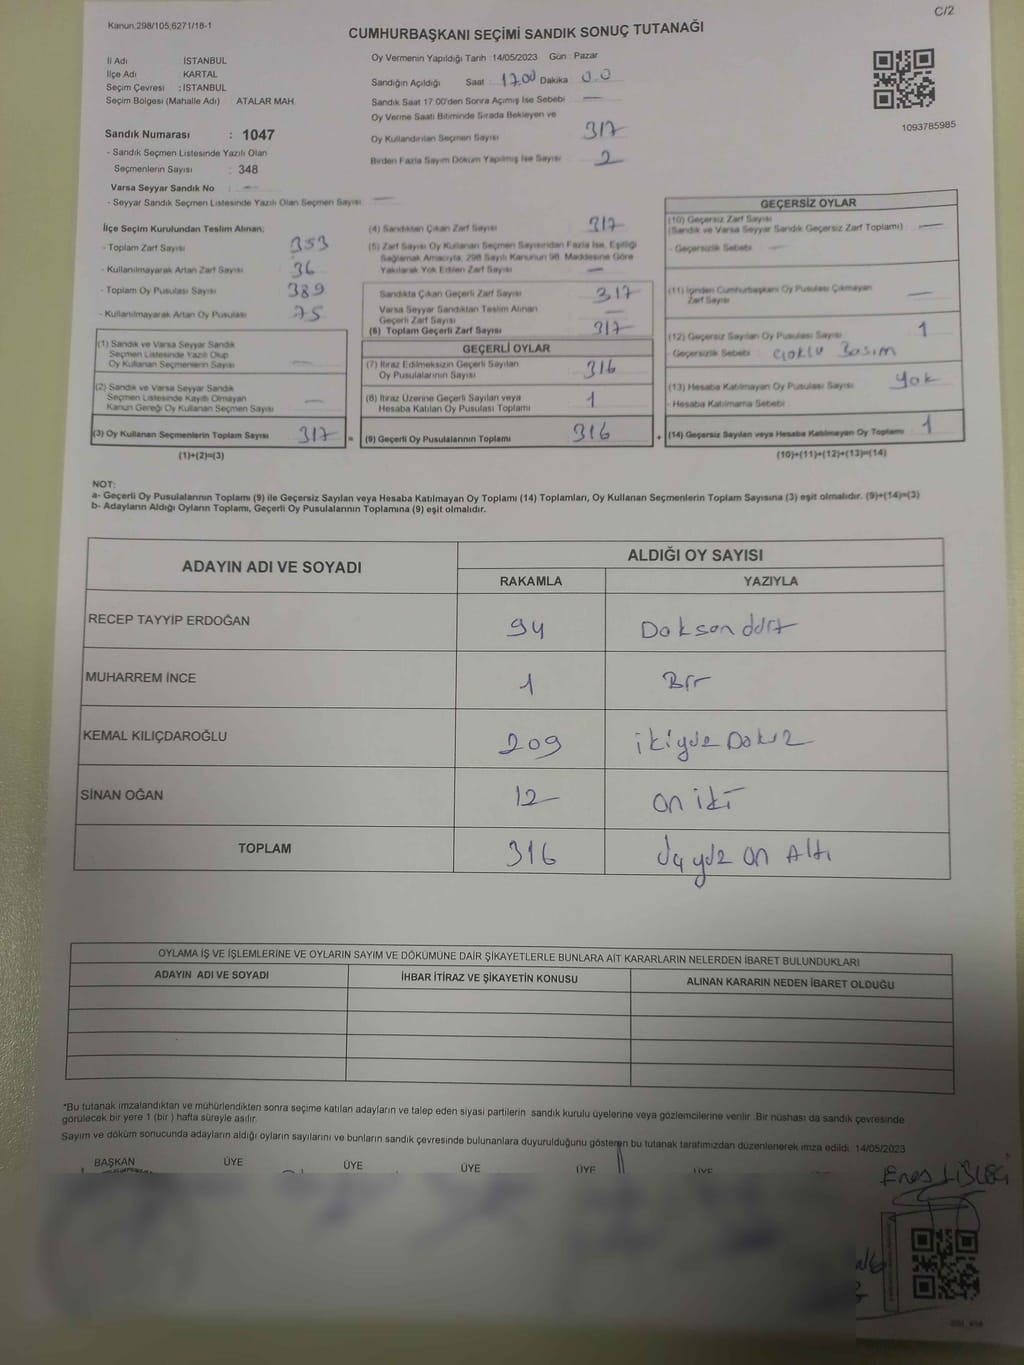 Kanun:298/105;6271/18-1
C/2
CUMHURBAŞKANI SEÇİMİ SANDIK SONUÇ TUTANAĞI
İl Adı İSTANBUL
İlçe Adı KARTAL
Seçim Çevresi : İSTANBUL
Seçim Bölgesi (Mahalle Adı) ATALAR MAH.
Sandık Numarası : 1047
- Sandık Seçmen Listesinde Yazılı Olan
Seçmenlerin Sayısı : 348
Varsa Seyyar Sandık No : —
- Seyyar Sandık Seçmen Listesinde Yazılı Olan Seçmen Sayısı —
Oy Vermenin Yapıldığı Tarih :14/05/2023 Gün : Pazar
Sandığın Açıldığı Saat : 17.00 Dakika 0.0
Sandık Saat 17:00'den Sonra Açımış İse Sebebi —
Oy Verme Saati Bitiminde Sırada Bekleyen ve
Oy Kullandırılan Seçmen Sayısı 317
Birden Fazla Sayım Döküm Yapılmış İse Sayısı 2
1093785985
İlçe Seçim Kurulundan Teslim Alınan;
- Toplam Zarf Sayısı 353
- Kullanılmayarak Artan Zarf Sayısı 36
- Toplam Oy Pusulası Sayısı 389
- Kullanılmayarak Artan Oy Pusulası 75
(1) Sandık ve Varsa Seyyar Sandık
Seçmen Listesinde Yazılı Olup
Oy Kullanan Seçmenlerin Sayısı —
(2) Sandık ve Varsa Seyyar Sandık
Seçmen Listesinde Kayıtlı Olmayan
Kanun Gereği Oy Kullanan Seçmen Sayısı —
(3) Oy Kullanan Seçmenlerin Toplam Sayısı 317 =
(1)+(2)=(3)
(4) Sandıktan Çıkan Zarf Sayısı 317
(5) Zarf Sayısı Oy Kullanan Seçmen Sayısından Fazla İse, Eşitliği
Sağlamak Amacıyla, 298 Sayılı Kanunun 98. Maddesine Göre
Yakılarak Yok Edilen Zarf Sayısı —
Sandıkta Çıkan Geçerli Zarf Sayısı 317
Varsa Seyyar Sandıktan Teslim Alınan
Geçerli Zarf Sayısı —
(6) Toplam Geçerli Zarf Sayısı 317
GEÇERLİ OYLAR
(7) İtiraz Edilmeksizin Geçerli Sayılan
Oy Pusulalarının Sayısı 316
(8) İtiraz Üzerine Geçerli Sayılan veya
Hesaba Katılan Oy Pusulası Toplamı 1
(9) Geçerli Oy Pusulalarının Toplamı 316 +
GEÇERSİZ OYLAR
(10) Geçersiz Zarf Sayısı
(Sandık ve Varsa Seyyar Sandık Geçersiz Zarf Toplamı) —
- Geçersizlik Sebebi —
(11) İçinden Cumhurbaşkanı Oy Pusulası Çıkmayan
Zarf Sayısı —
(12) Geçersiz Sayılan Oy Pusulası Sayısı 1
- Geçersizlik Sebebi : çoklu Basım
(13) Hesaba Katılmayan Oy Pusulası Sayısı Yok
- Hesaba Katılmama Sebebi :
(14) Geçersiz Sayılan veya Hesaba Katılmayan Oy Toplamı 1
(10)+(11)+(12)+(13)=(14)
NOT:
a- Geçerli Oy Pusulalarının Toplamı (9) ile Geçersiz Sayılan veya Hesaba Katılmayan Oy Toplamı (14) Toplamları, Oy Kullanan Seçmenlerin Toplam Sayısına (3) eşit olmalıdır. (9)+(14)=(3)
b- Adayların Aldığı Oyların Toplamı, Geçerli Oy Pusulalarının Toplamına (9) eşit olmalıdır.
ADAYIN ADI VE SOYADI ALDIĞI OY SAYISI
RAKAMLA YAZIYLA
RECEP TAYYİP ERDOĞAN 94 Doksan dört
MUHARREM İNCE 1 Bir
KEMAL KILIÇDAROĞLU 209 ikiyüz Dokuz
SİNAN OĞAN 12 on iki
TOPLAM 316 üçyüz on Altı
OYLAMA İŞ VE İŞLEMLERİNE VE OYLARIN SAYIM VE DÖKÜMÜNE DAİR ŞİKAYETLERLE BUNLARA AİT KARARLARIN NELERDEN İBARET BULUNDUKLARI
ADAYIN ADI VE SOYADI İHBAR İTİRAZ VE ŞİKAYETİN KONUSU ALINAN KARARIN NEDEN İBARET OLDUĞU
*Bu tutanak imzalandıktan ve mühürlendikten sonra seçime katılan adayların ve talep eden siyasi partilerin sandık kurulu üyelerine veya gözlemcilerine verilir. Bir nüshası da sandık çevresinde
görülecek bir yere 1 (bir ) hafta süreyle asılır.
Sayım ve döküm sonucunda adayların aldığı oyların sayılarını ve bunların sandık çevresinde bulunanlara duyurulduğunu gösteren bu tutanak tarafımızdan düzenlenerek imza edildi. 14/05/2023
BAŞKAN ÜYE ÜYE ÜYE ÜYE ÜYE